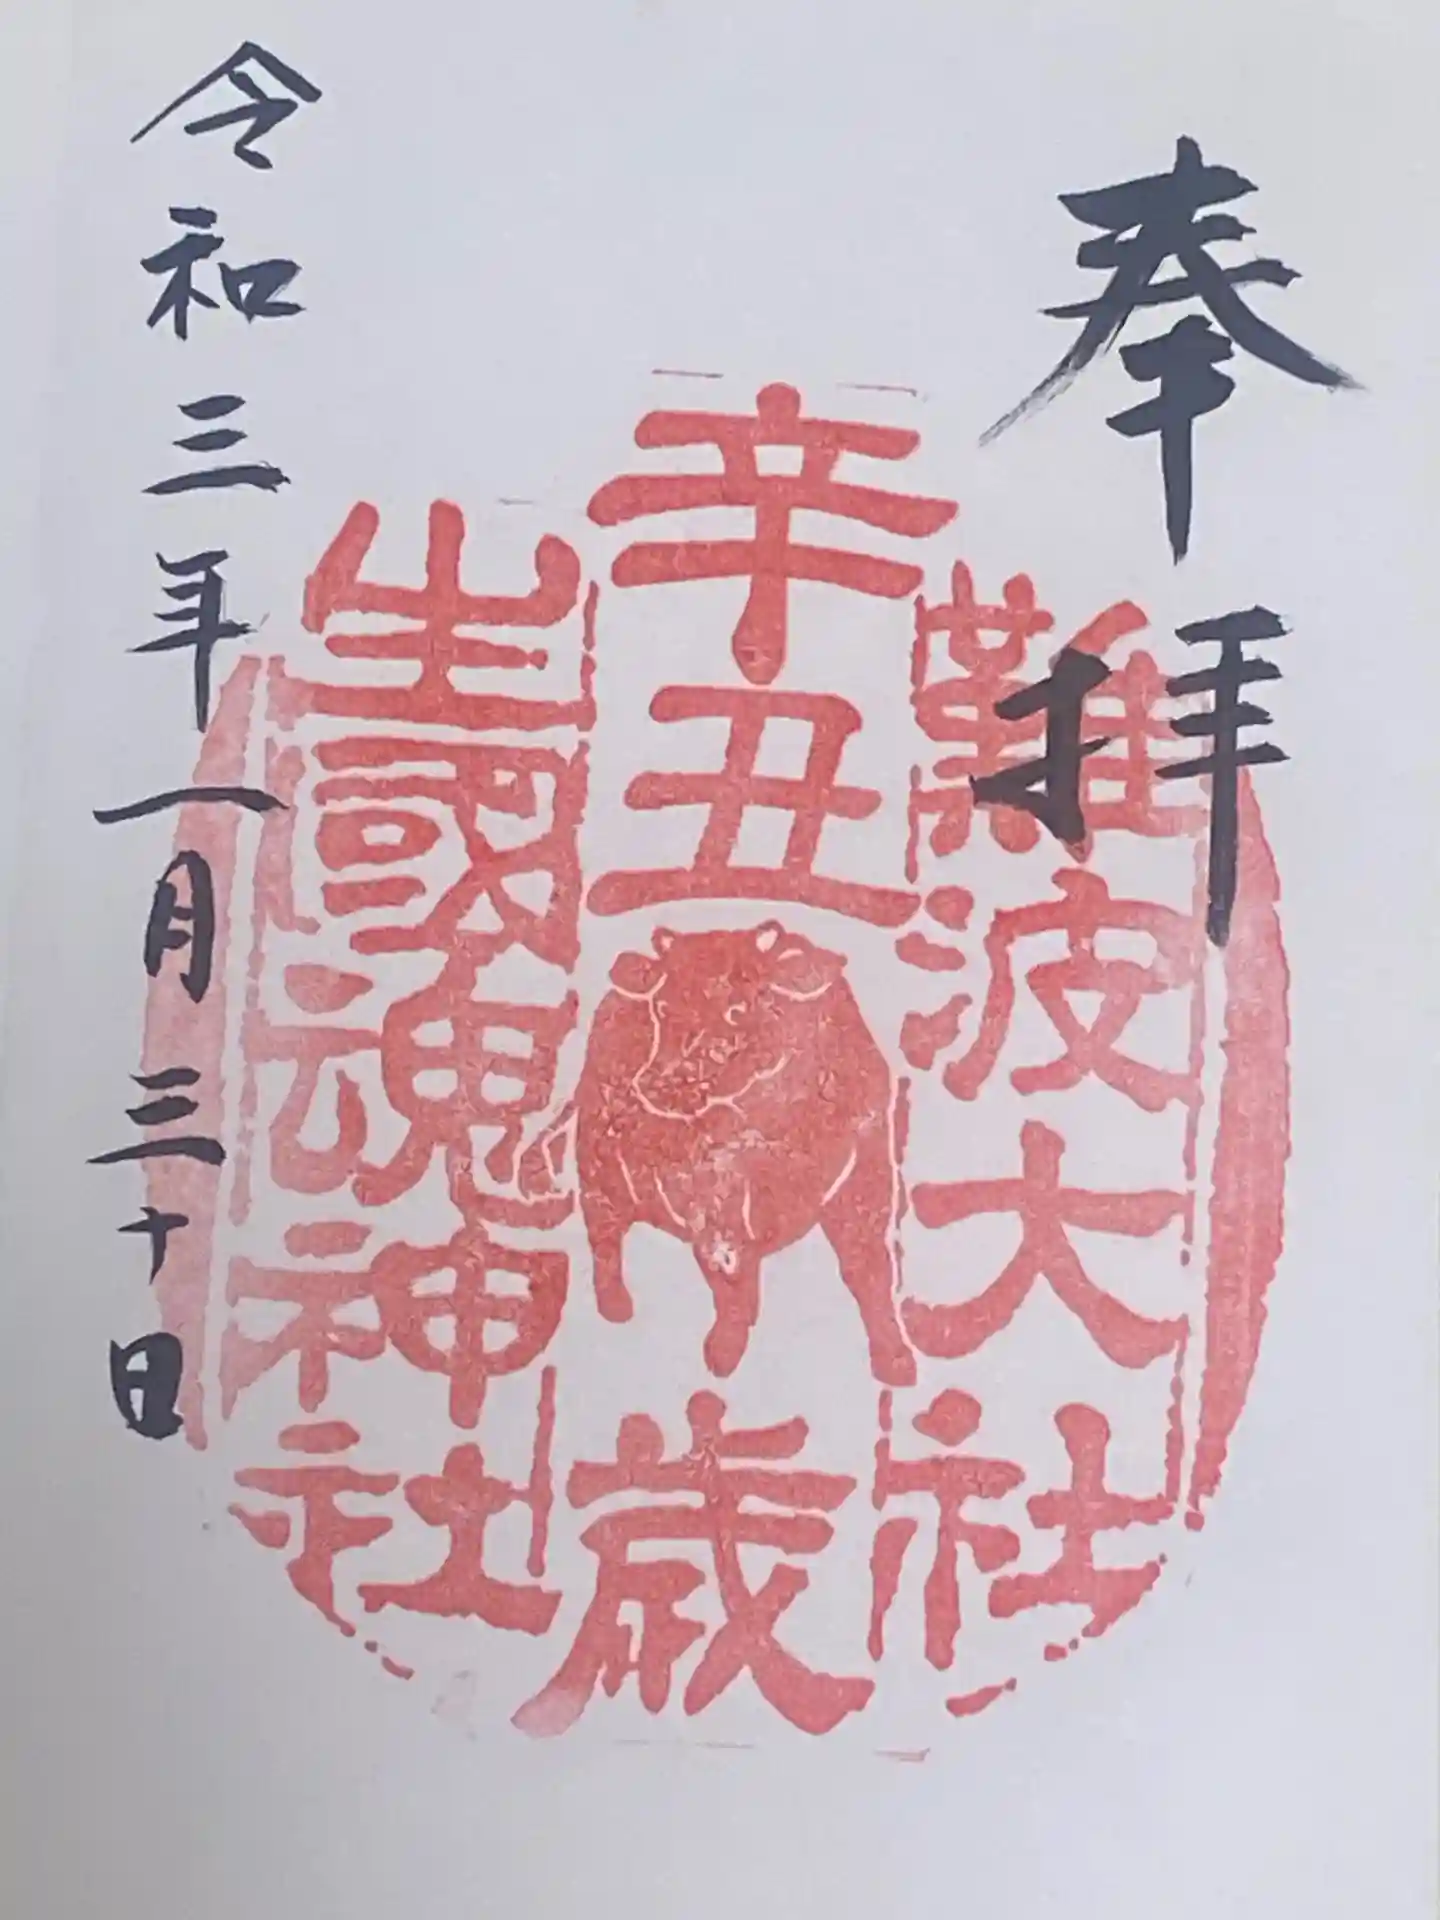 奉拝
難波大社
辛丑歳
生國魂神社
令和三年一月三十日